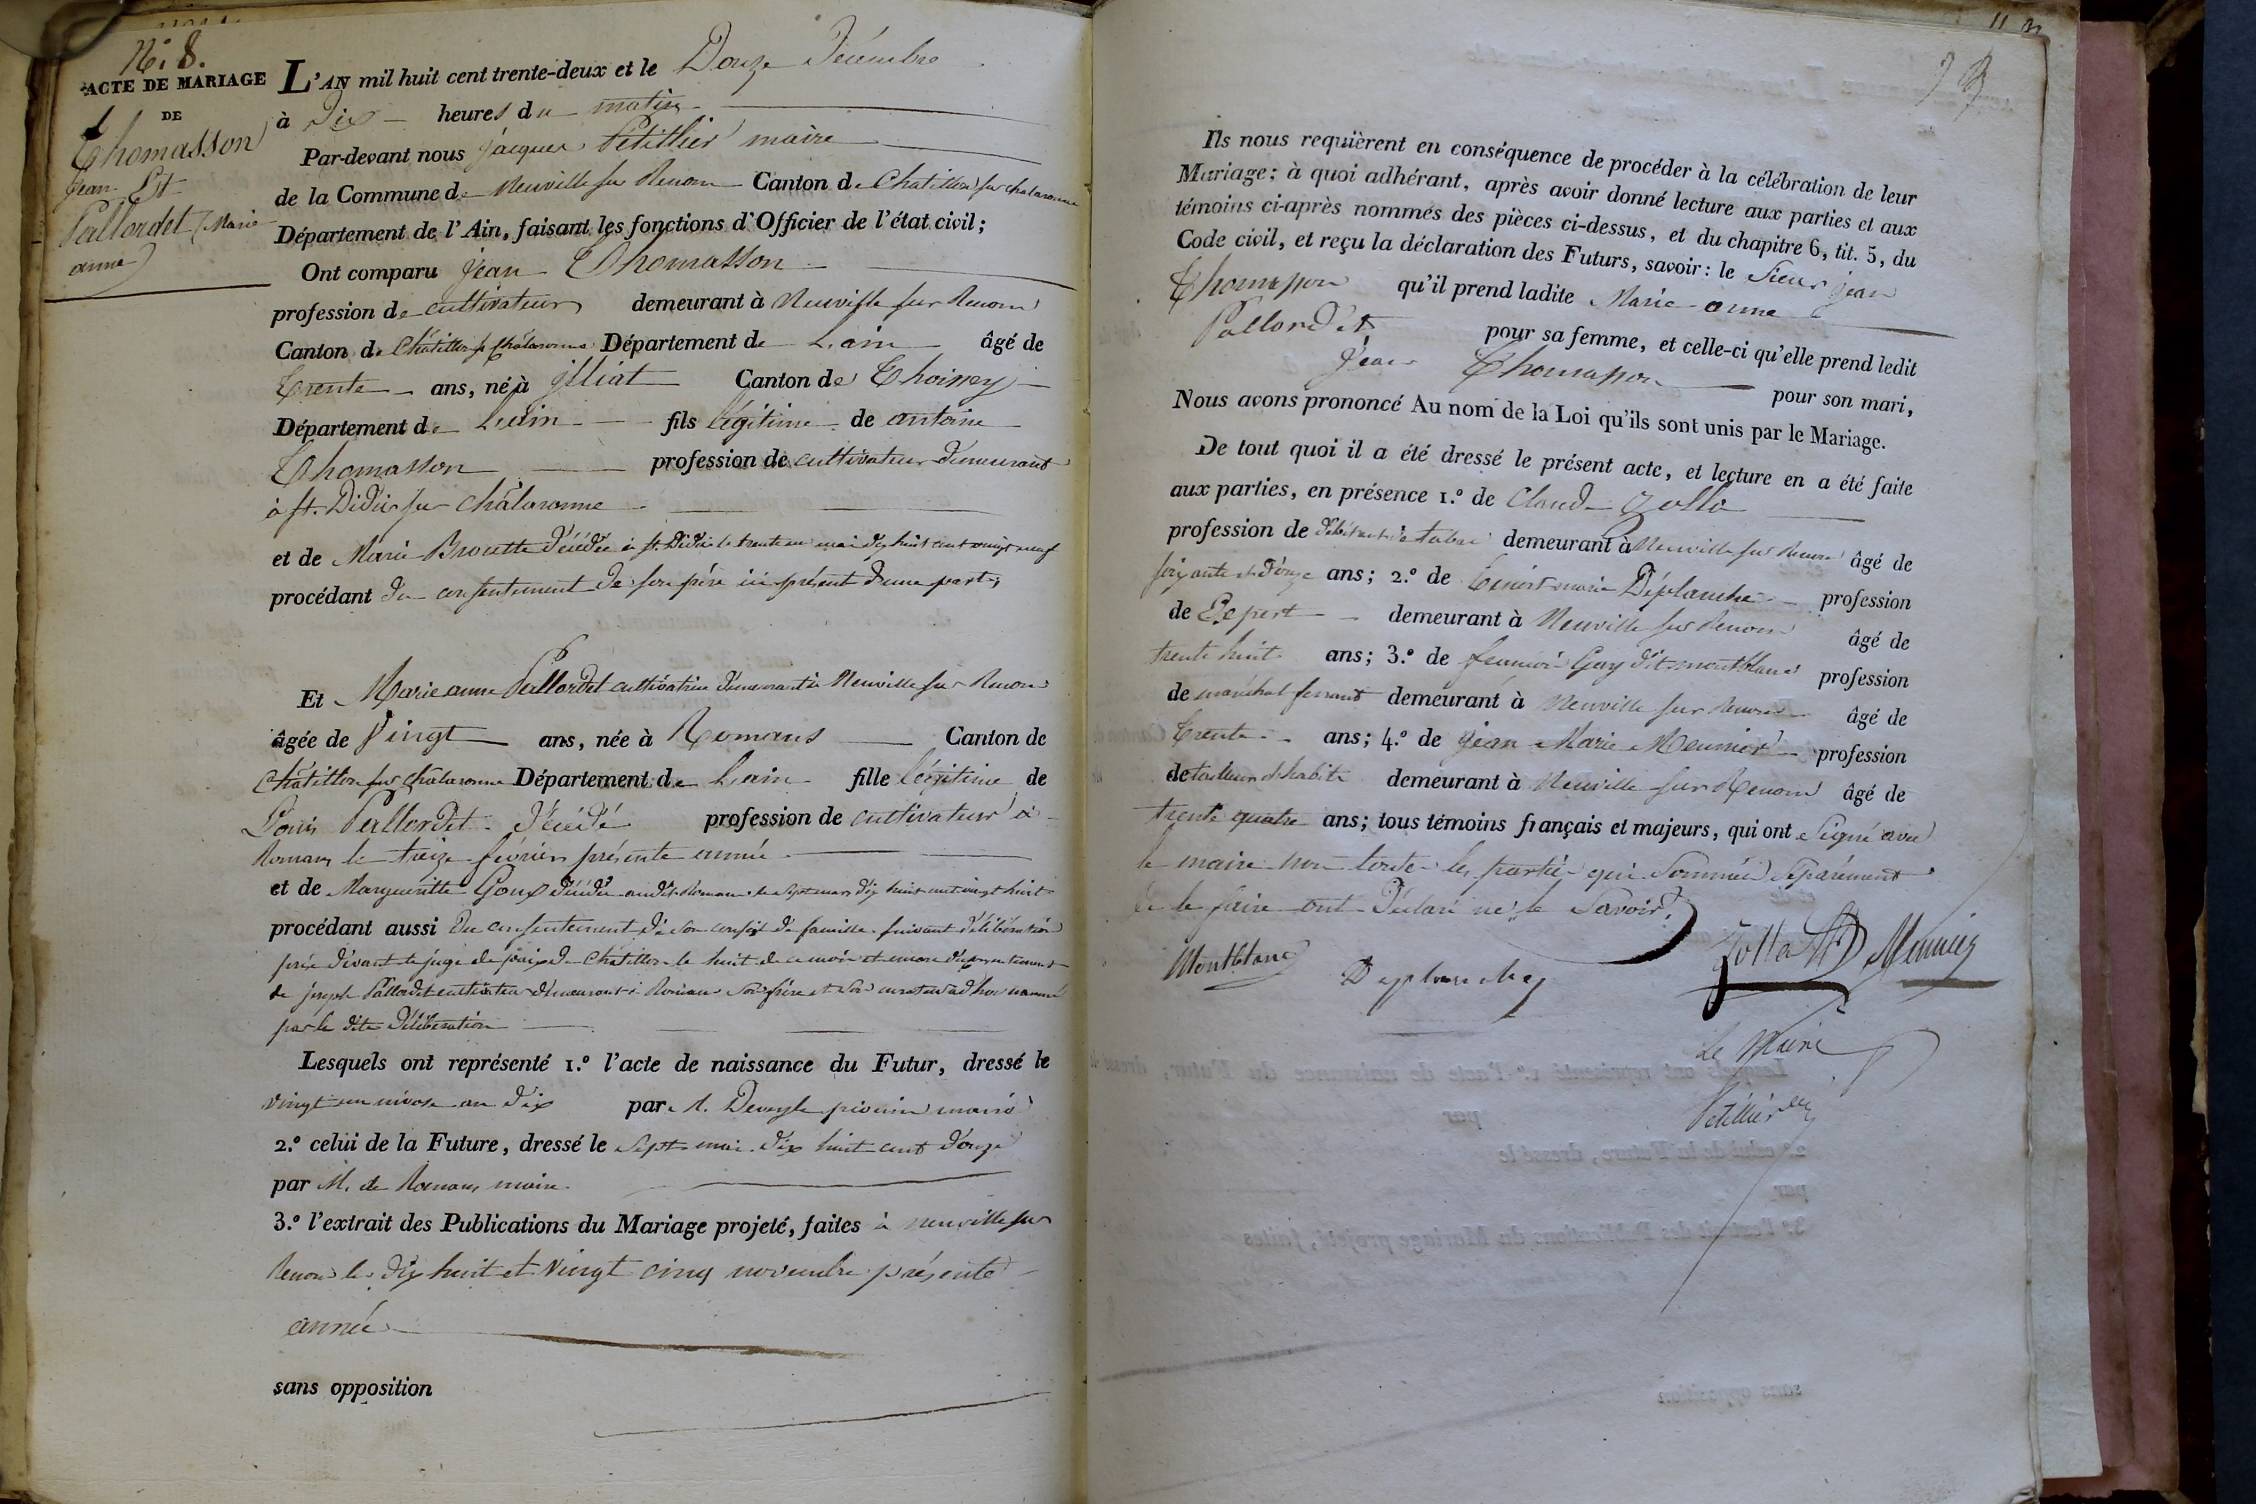 N.° 8.
ACTE DE MARIAGE
DE
Thomasson
Jean Et
Pallordet (Marie
anne)
L'AN mil huit cent trente-deux et le Douze Décembre
à Dix heures du matin
Par-devant nous jacques Pétillier maire
de la Commune de Neuville sur Renom Canton de Chatillon sur chalaronne
Département de l'Ain, faisant les fonctions d'Officier de l'état civil;
Ont comparu jean Thomasson
profession de cultivateur demeurant à Neuville sur Renom
Canton de Châtillon s. Châlaronne Département de L'ain âgé de
trente ans, né à jlliat Canton de Thoissey
Département de L'ain fils légitime de antoine
Thomasson profession de cultivateur demeurant
à st. Didier sur Châlaronne
et de Marie Broutte décédée à st. Didier le trente un mai dix huit cent vingt neuf
procédant du consentement de son père ici présent d'une part;
Et Marie anne Pallordet cultivatrice demeurant à Neuville sur Renom
âgée de Vingt ans, née à Romans Canton de
Châtillon sur Châlaronne Département de L'ain fille légitime de
Louis Pallordet décédé profession de cultivateur à
Romans le treize février présente année
et de Margueritte Goux décédée audit Romans le sept mars dix huit cent vingt huit
procédant aussi Du consentement de son conseil de famille suivant délibération
prise devant le juge de paix de Châtillon le huit de ce mois et encore du consentement
de joseph Pallordet cultivateur demeurant à Romans son frère et son curateur ad hoc nommé
par la dite délibération
Lesquels ont représenté 1.° l'acte de naissance du Futur, dressé le
vingt un nivose an dix par M. Deveyle
2.° celui de la Future, dressé le sept mai dix huit cent douze
par M. de Romans maire
3.° l'extrait des Publications du Mariage projeté, faites à neuville sur
Renom les dix huit et vingt cinq novembre présente
année
sans opposition
Ils nous requièrent en conséquence de procéder à la célébration de leur
Mariage; à quoi adhérant, après avoir donné lecture aux parties et aux
témoins ci-après nommés des pièces ci-dessus, et du chapitre 6, tit. 5, du
Code civil, et reçu la déclaration des Futurs, savoir: le sieur jean
Thomasson qu'il prend ladite Marie anne
Pallordet pour sa femme, et celle-ci qu'elle prend ledit
Jean Thomasson pour son mari,
Nous avons prononcé Au nom de la Loi qu'ils sont unis par le Mariage.
De tout quoi il a été dressé le présent acte, et lecture en a été faite
aux parties, en présence 1.° de Claude Jolla
profession de débitant de tabac demeurant à Neuville sur Renom âgé de
soixante et douze ans; 2.° de benoit marie Déplanche profession
de Expert demeurant à Neuville sur Renom âgé de
trente huit ans; 3.° de françois Gay dit montblanc profession
de maréchal ferrant demeurant à Neuville sur Renom âgé de
trente ans; 4.° de jean Marie Meunier profession
de tailleur d'habits demeurant à Neuville sur Renom âgé de
trente quatre ans; tous témoins français et majeurs, qui ont signé avec
le maire non toute les partie qui sommées séparément
de le faire ont déclaré ne le savoir.
Montblanc Deplanche Jolla Meunier
Le Maire
Petillier